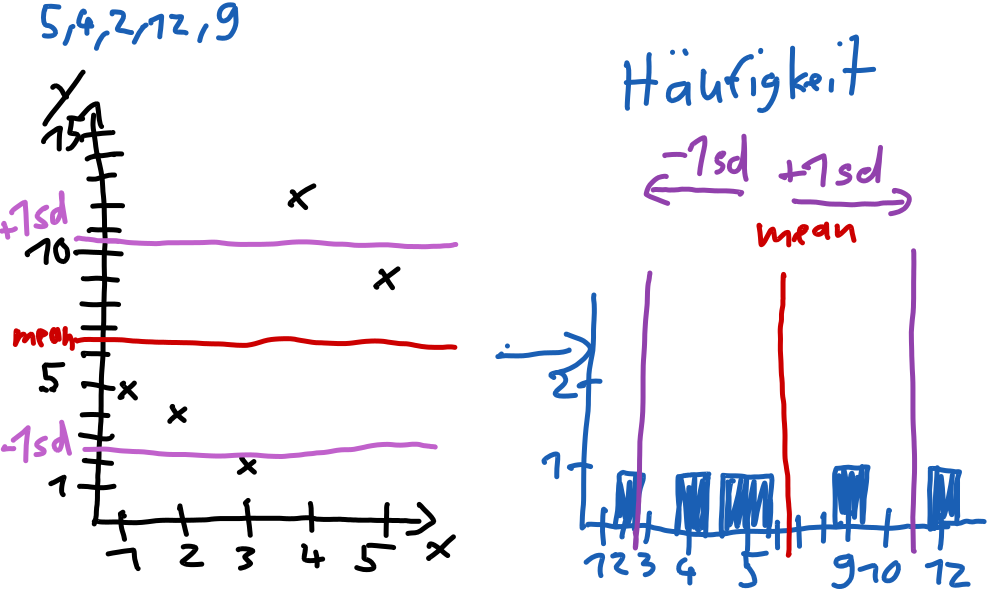 5, 4, 2, 12, 9
y
15
+1sd
10
mean
5
-1sd
1
1 2 3 4 5 x
Häufigkeit
-1sd +1sd
mean
2
1
1 2 3 4 5 9 10 12